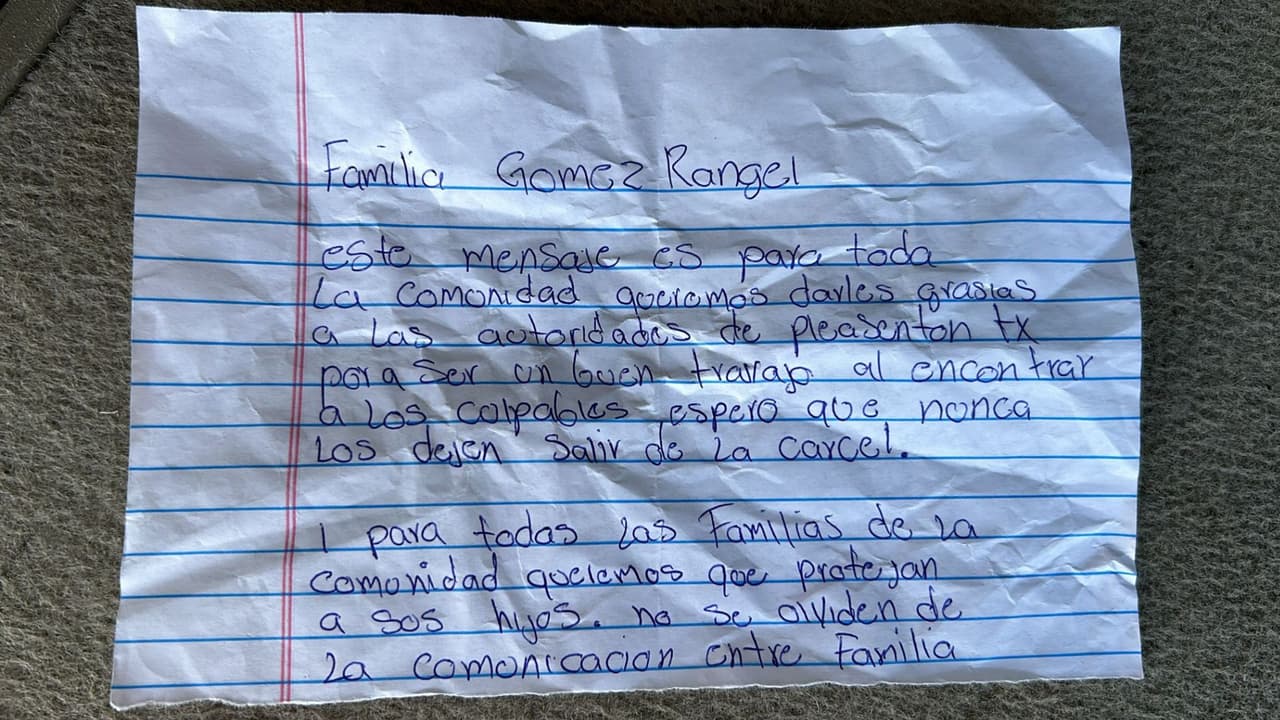 Familia Gomez Rangel
este mensaje es para toda
La comonidad queremos darles grasias
a Las autoridades de pleasenton tx
por a ser un buen travajo al encontrar
a Los colpables espero que nonca
Los dejen salir de La carcel.
I para todas las Familias de La
comonidad queremos que protejan
a sos hijos. no se olviden de
La comonicacion entre Familia